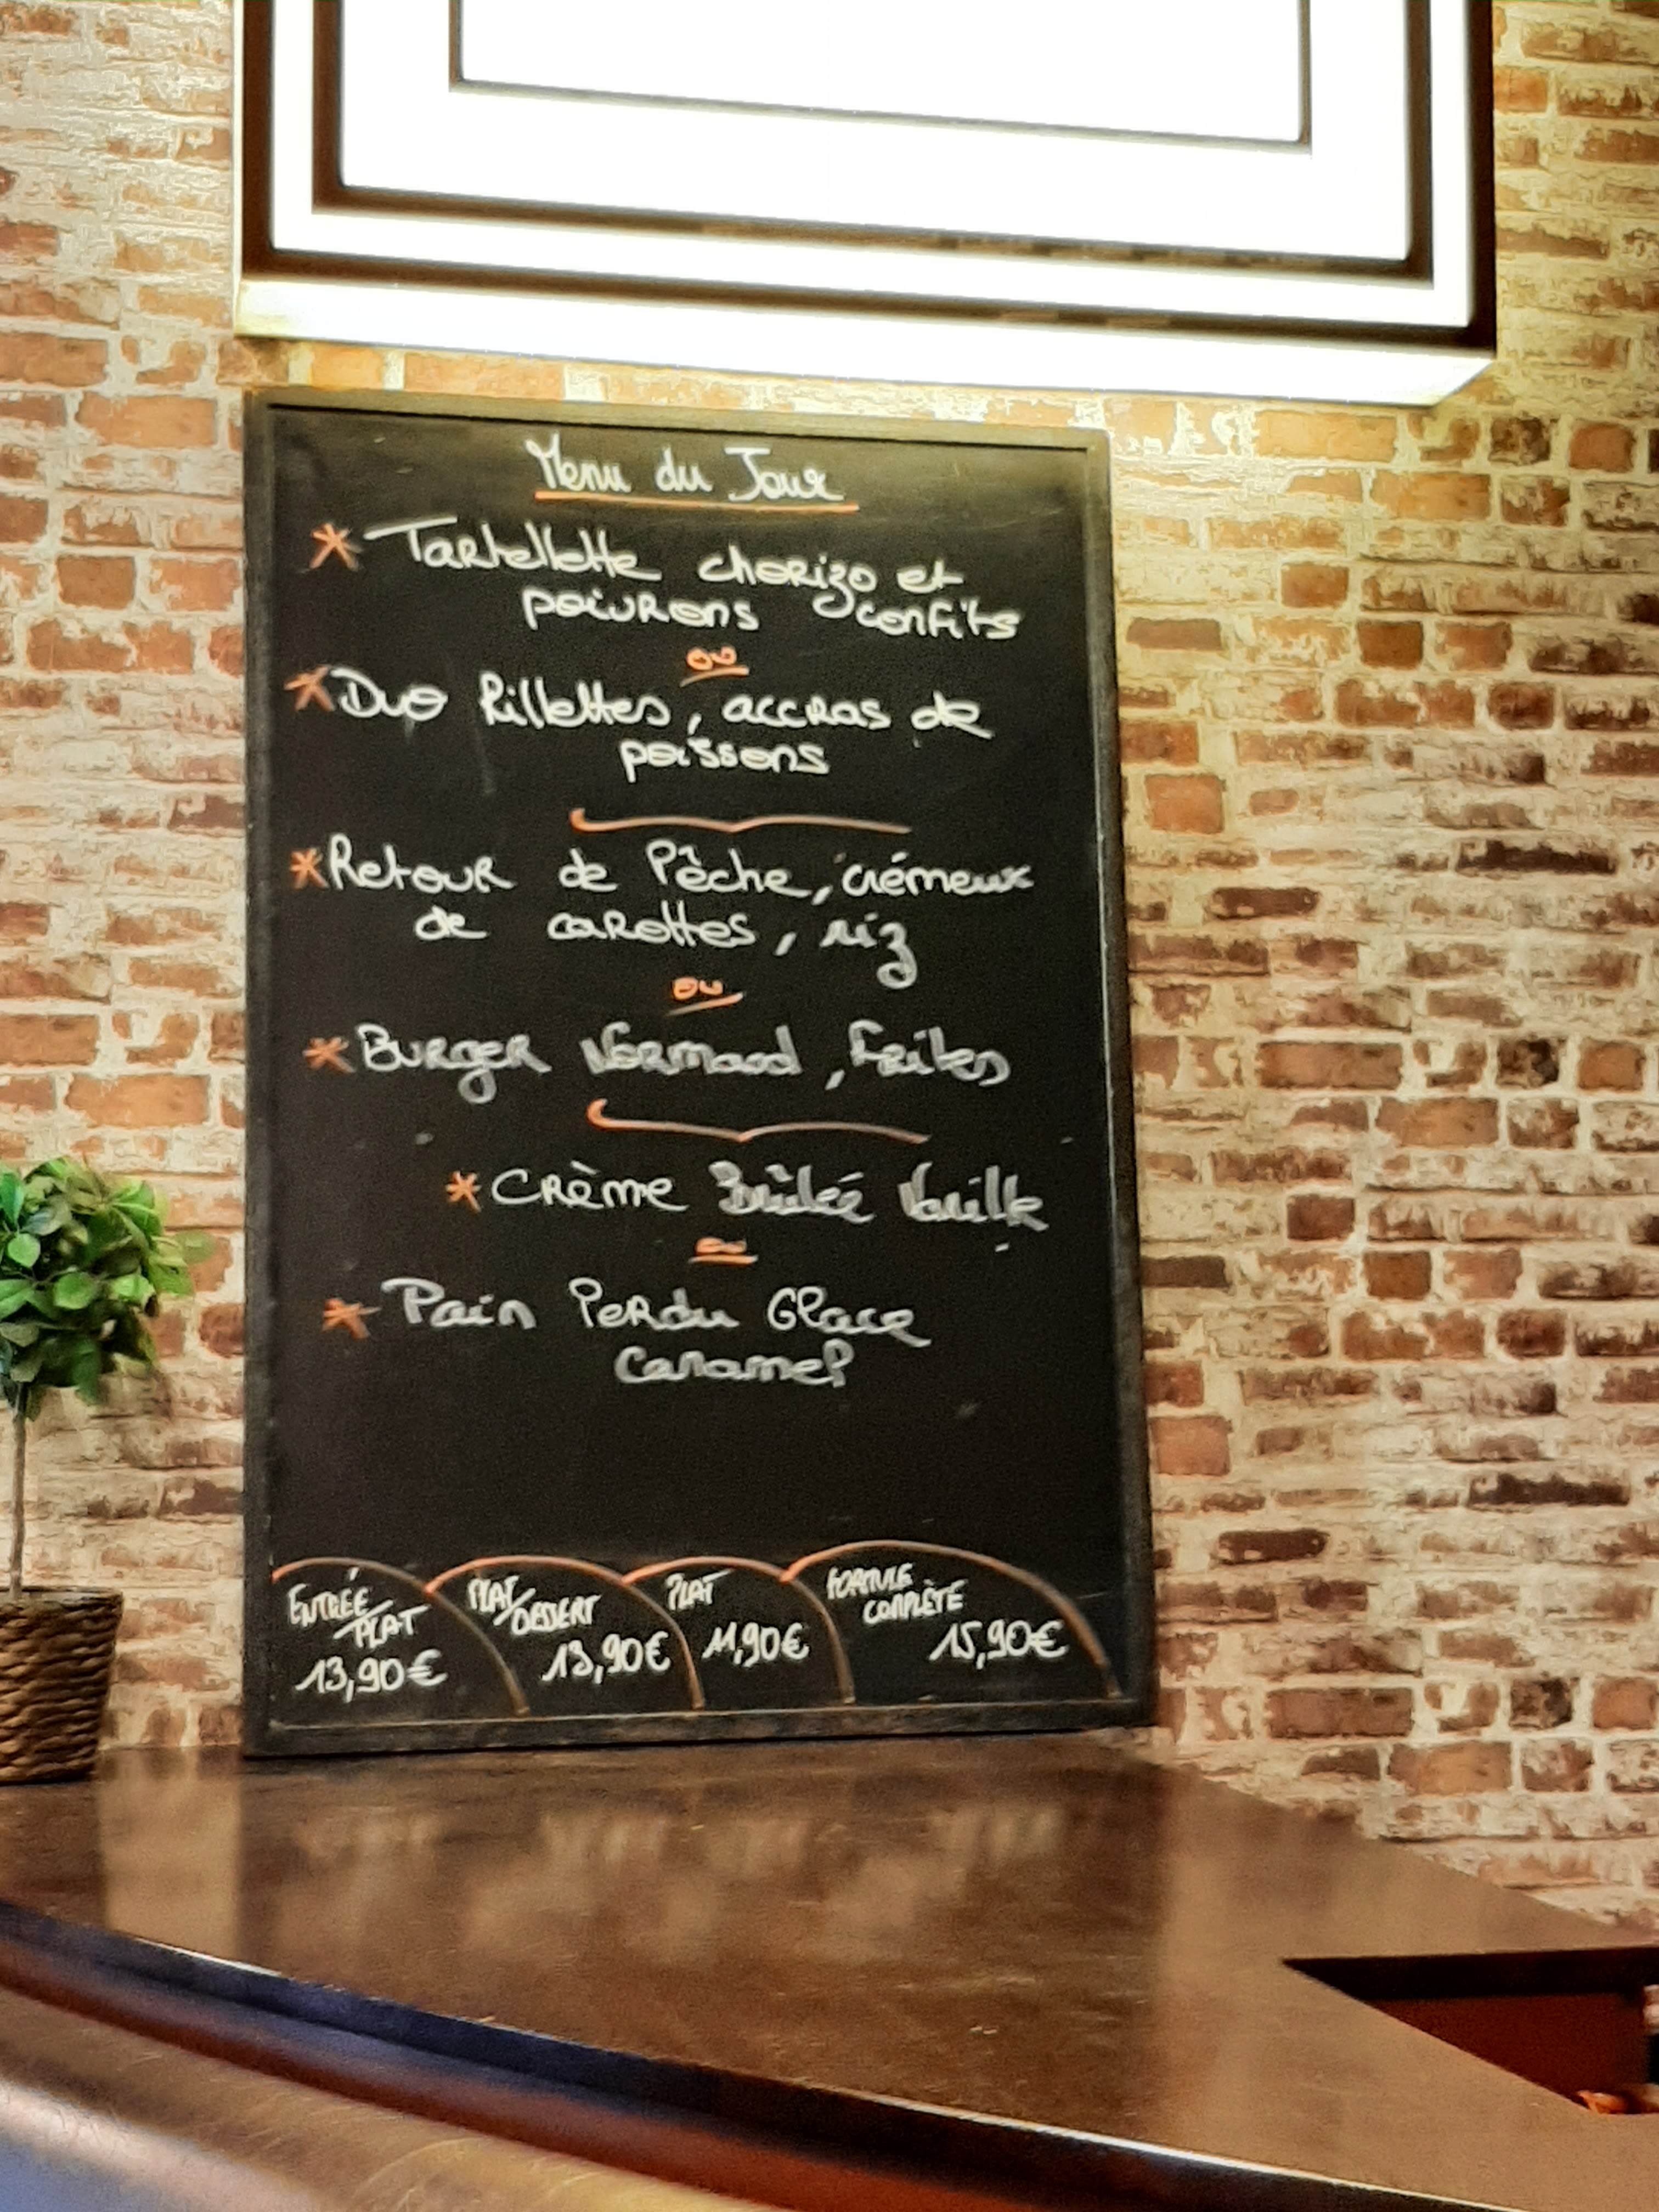 Menu du Jour
* Tartellette chorizo et
poivrons confits
ou
* Duo Rillettes, accras de
poissons
* Retour de Pêche, crémeux
de carottes, riz
ou
* Burger Normand, Frites
* Crème Brûlée Vanille
ou
* Pain Perdu Glace
Caramel
ENTRÉE/PLAT
13,90€
PLAT/DESSERT
13,90€
PLAT
11,90€
FORMULE
COMPLÈTE
15,90€